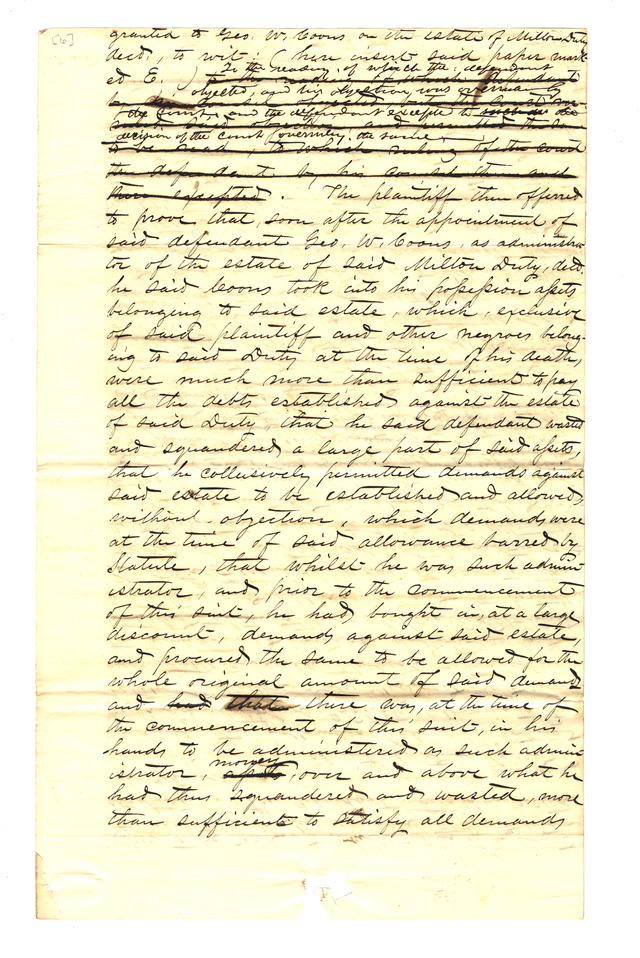 [6]
granted to Geo. W. Coons on the estate of Milton Duty
decd., to wit: (here insert said paper mark-
ed E. ) To the reading of which the defendant
objected, and his objection was overruled by
the Court, and the defendant excepted to
decision of the court overruling the same.
to be read, to which ruling of the court
the defendant by his counsel then and
there excepted. The plaintiff then offered
to prove that, soon after the appointment of
said defendant Geo. W. Coons, as administra-
tor of the estate of said Milton Duty, decd.
he said Coons took into his possession assets
belonging to said estate, which, exclusive
of said plaintiff and other negroes belong-
ing to said Duty at the time of his death,
were much more than sufficient to pay
all the debts established against the estate
of said Duty, that he said defendant wasted
and squandered a large part of said assets,
that he collusively permitted demands against
said estate to be established and allowed,
without objection, which demands were
at the time of said allowance barred by
Statute, that whilst he was such admin-
istrator, and prior to the commencement
of this suit, he had bought in, at a large
discount, demands against said estate,
and procured the same to be allowed for the
whole original amount of said demands
and had that there was, at the time of
the commencement of this suit, in his
hands to be administered as such admin-
istrator, money assets, over and above what he
had thus squandered and wasted, more
than sufficient to satisfy all demands